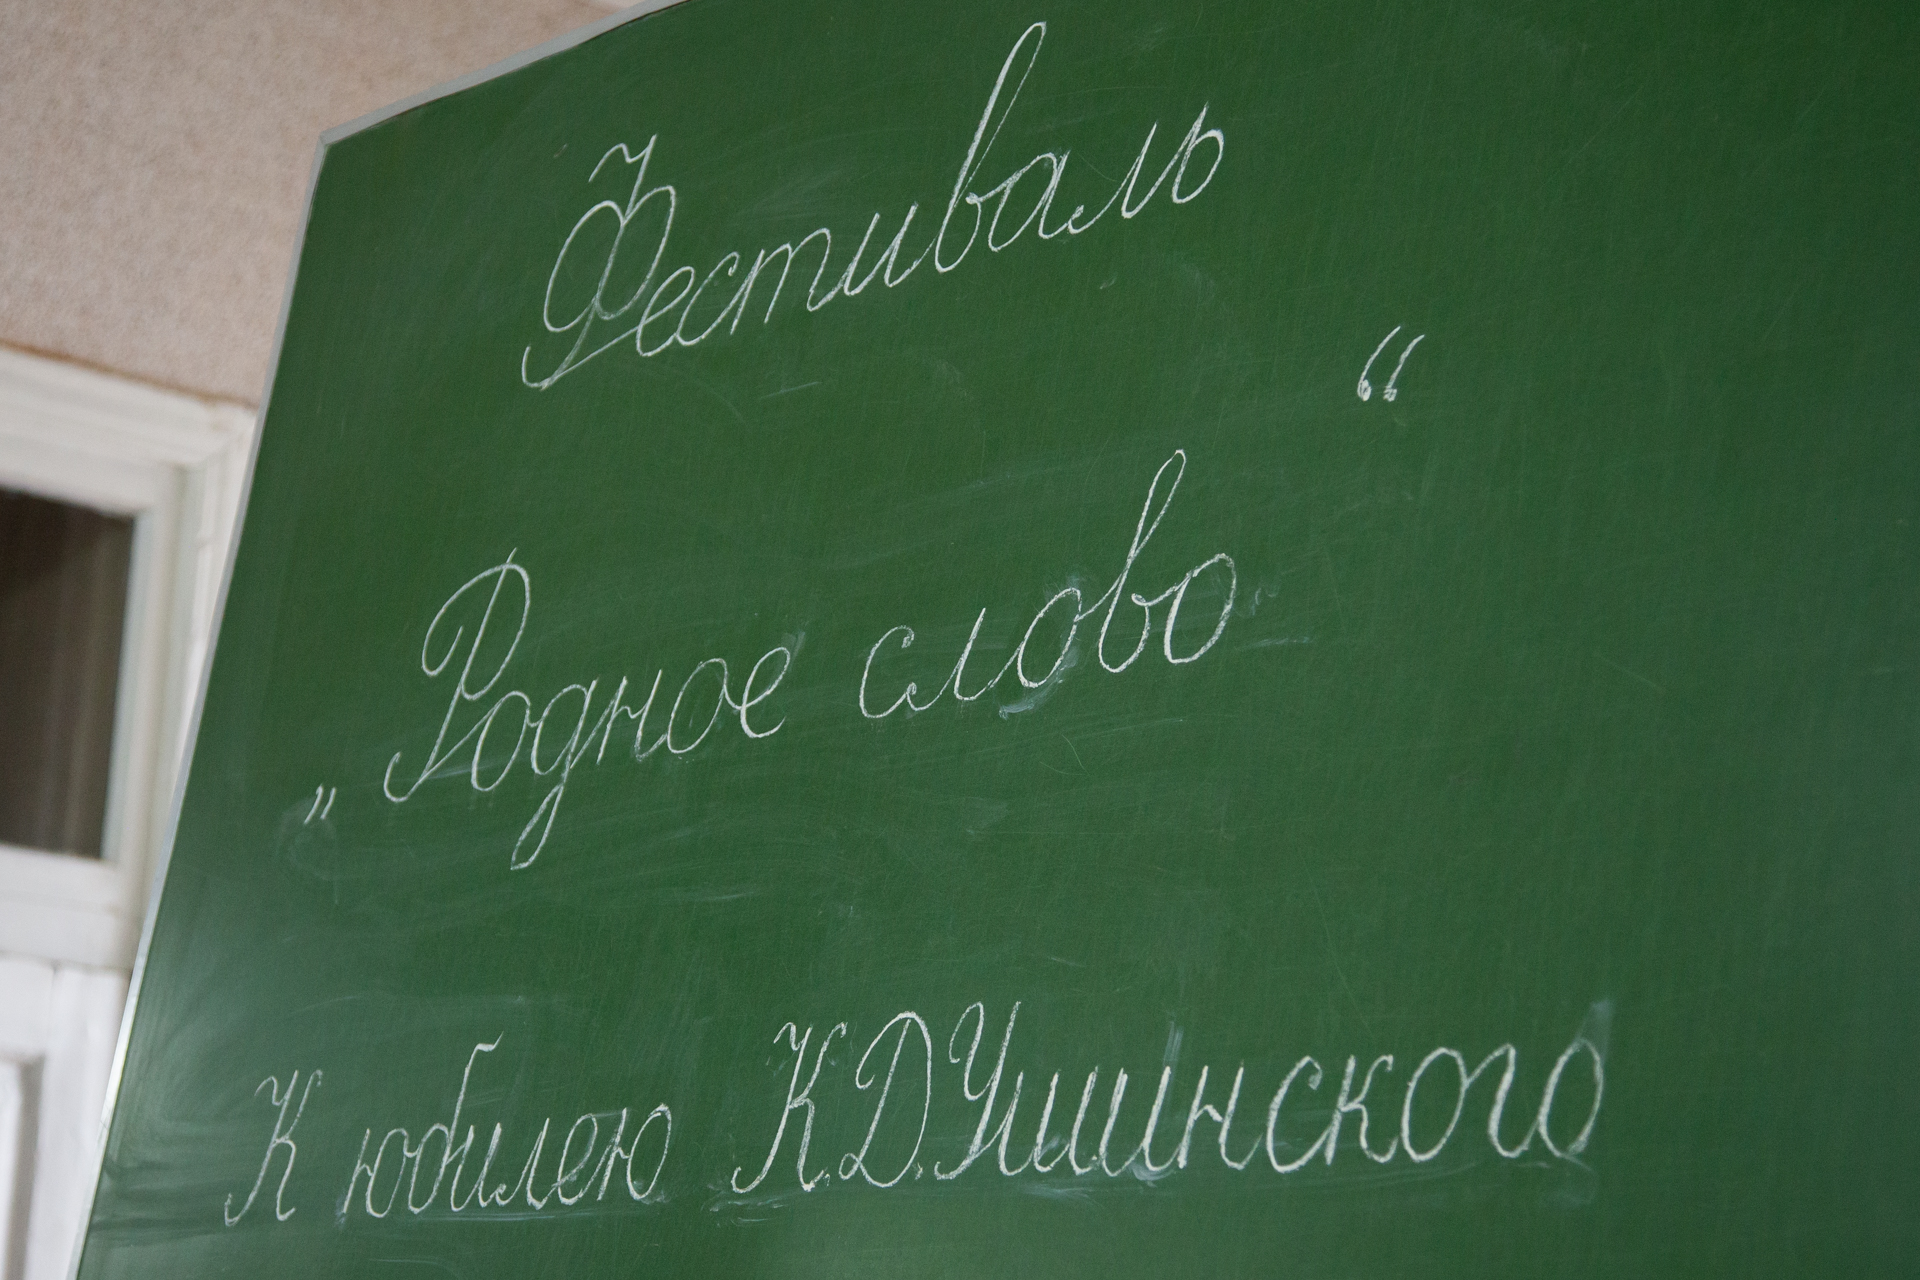 Фестиваль
„Родное слово“
К юбилею К.Д.Ушинского